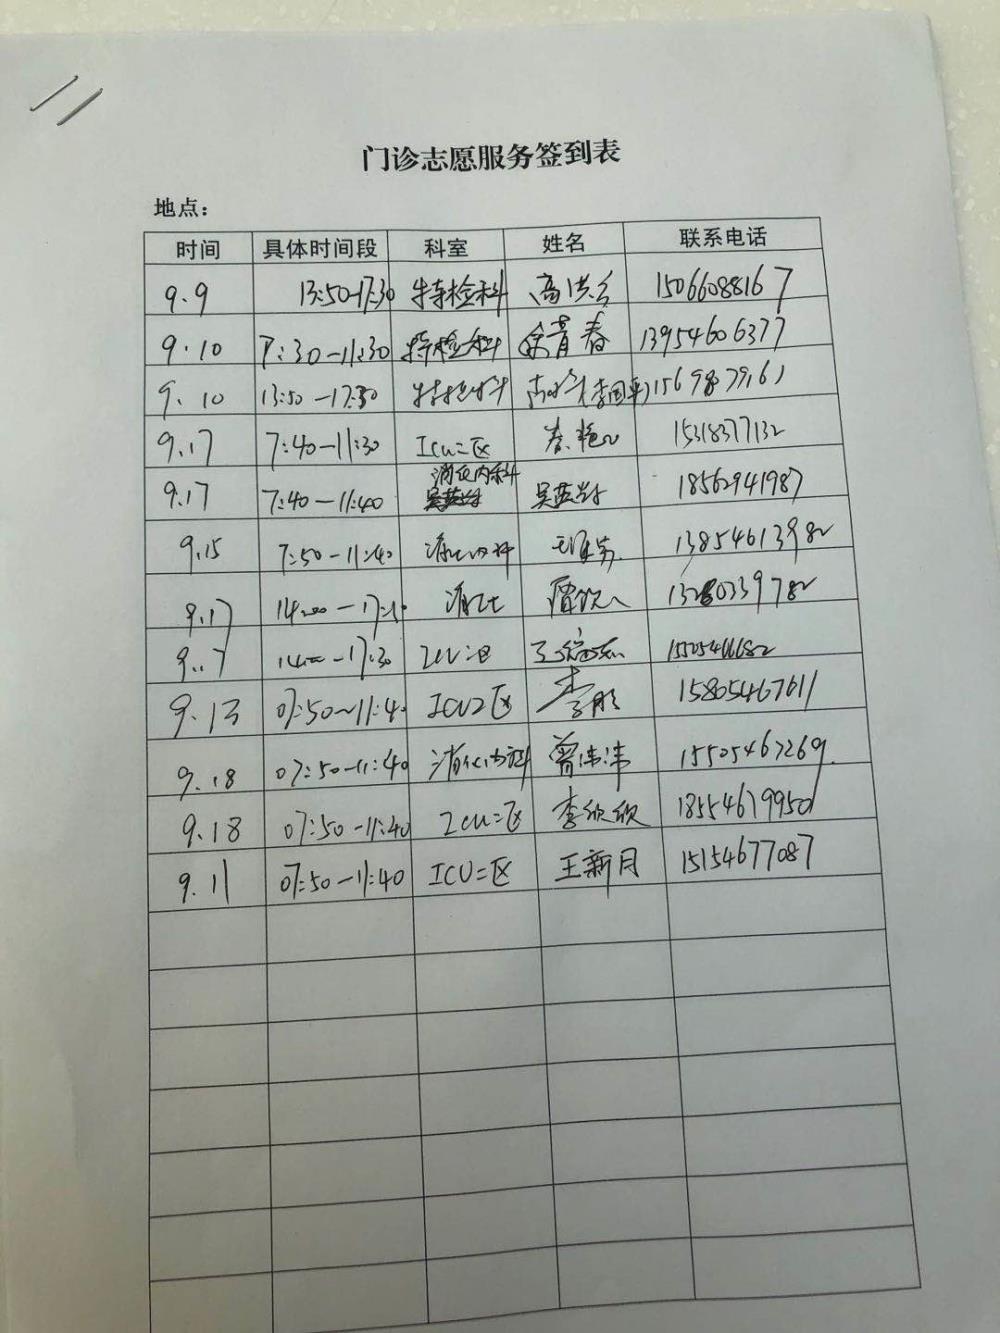 门诊志愿服务签到表
地点：
时间 具体时间段 科室 姓名 联系电话
9.9 13:50-17:30 特检科 高洪 15066088167
9.10 7:30-11:30 特检科 徐青春 13954606377
9.10 13:50-17:30 特检科 1569879161
9.17 7:40-11:30 ICU二区 15318377132
9.17 7:40-11:40 消化内科 18562941987
9.15 7:50-11:40 消化内科 13854613982
9.17 14:00-17: 消化 13280339782
9.17 14:00-17:30 ICU二区
9.13 07:50~11:40 ICU2区 李彤 15805467611
9.18 07:50-11:40 消化内科 曾沛沛 15505467269
9.18 07:50-11:40 ICU二区 李欣欣 18554679950
9.11 07:50-11:40 ICU二区 王新月 15154677087